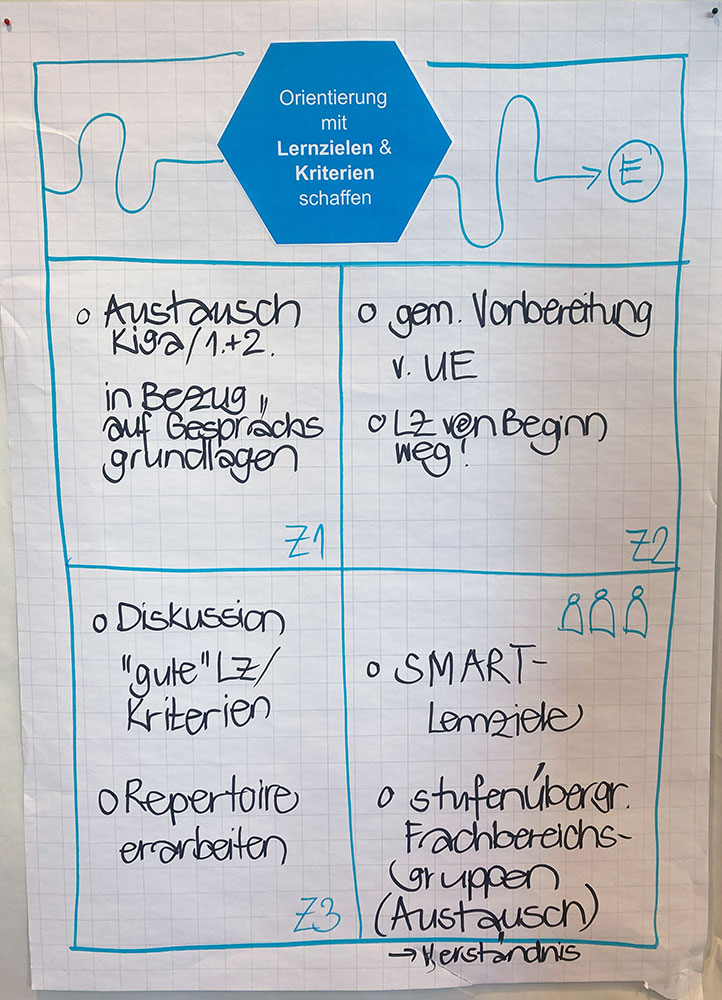 Orientierung
mit
Lernzielen &
Kriterien
schaffen
E
o Austausch
Kiga/1.+2.
in Bezug
auf Gesprächs
grundlagen
Z1
o gem. Vorbereitung
v. UE
o LZ von Beginn
weg!
Z2
o Diskussion
"gute" LZ/
Kriterien
o Repertoire
erarbeiten
Z3
o SMART-
Lernziele
o stufenübergr.
Fachbereichs-
gruppen
(Austausch)
→ Verständnis